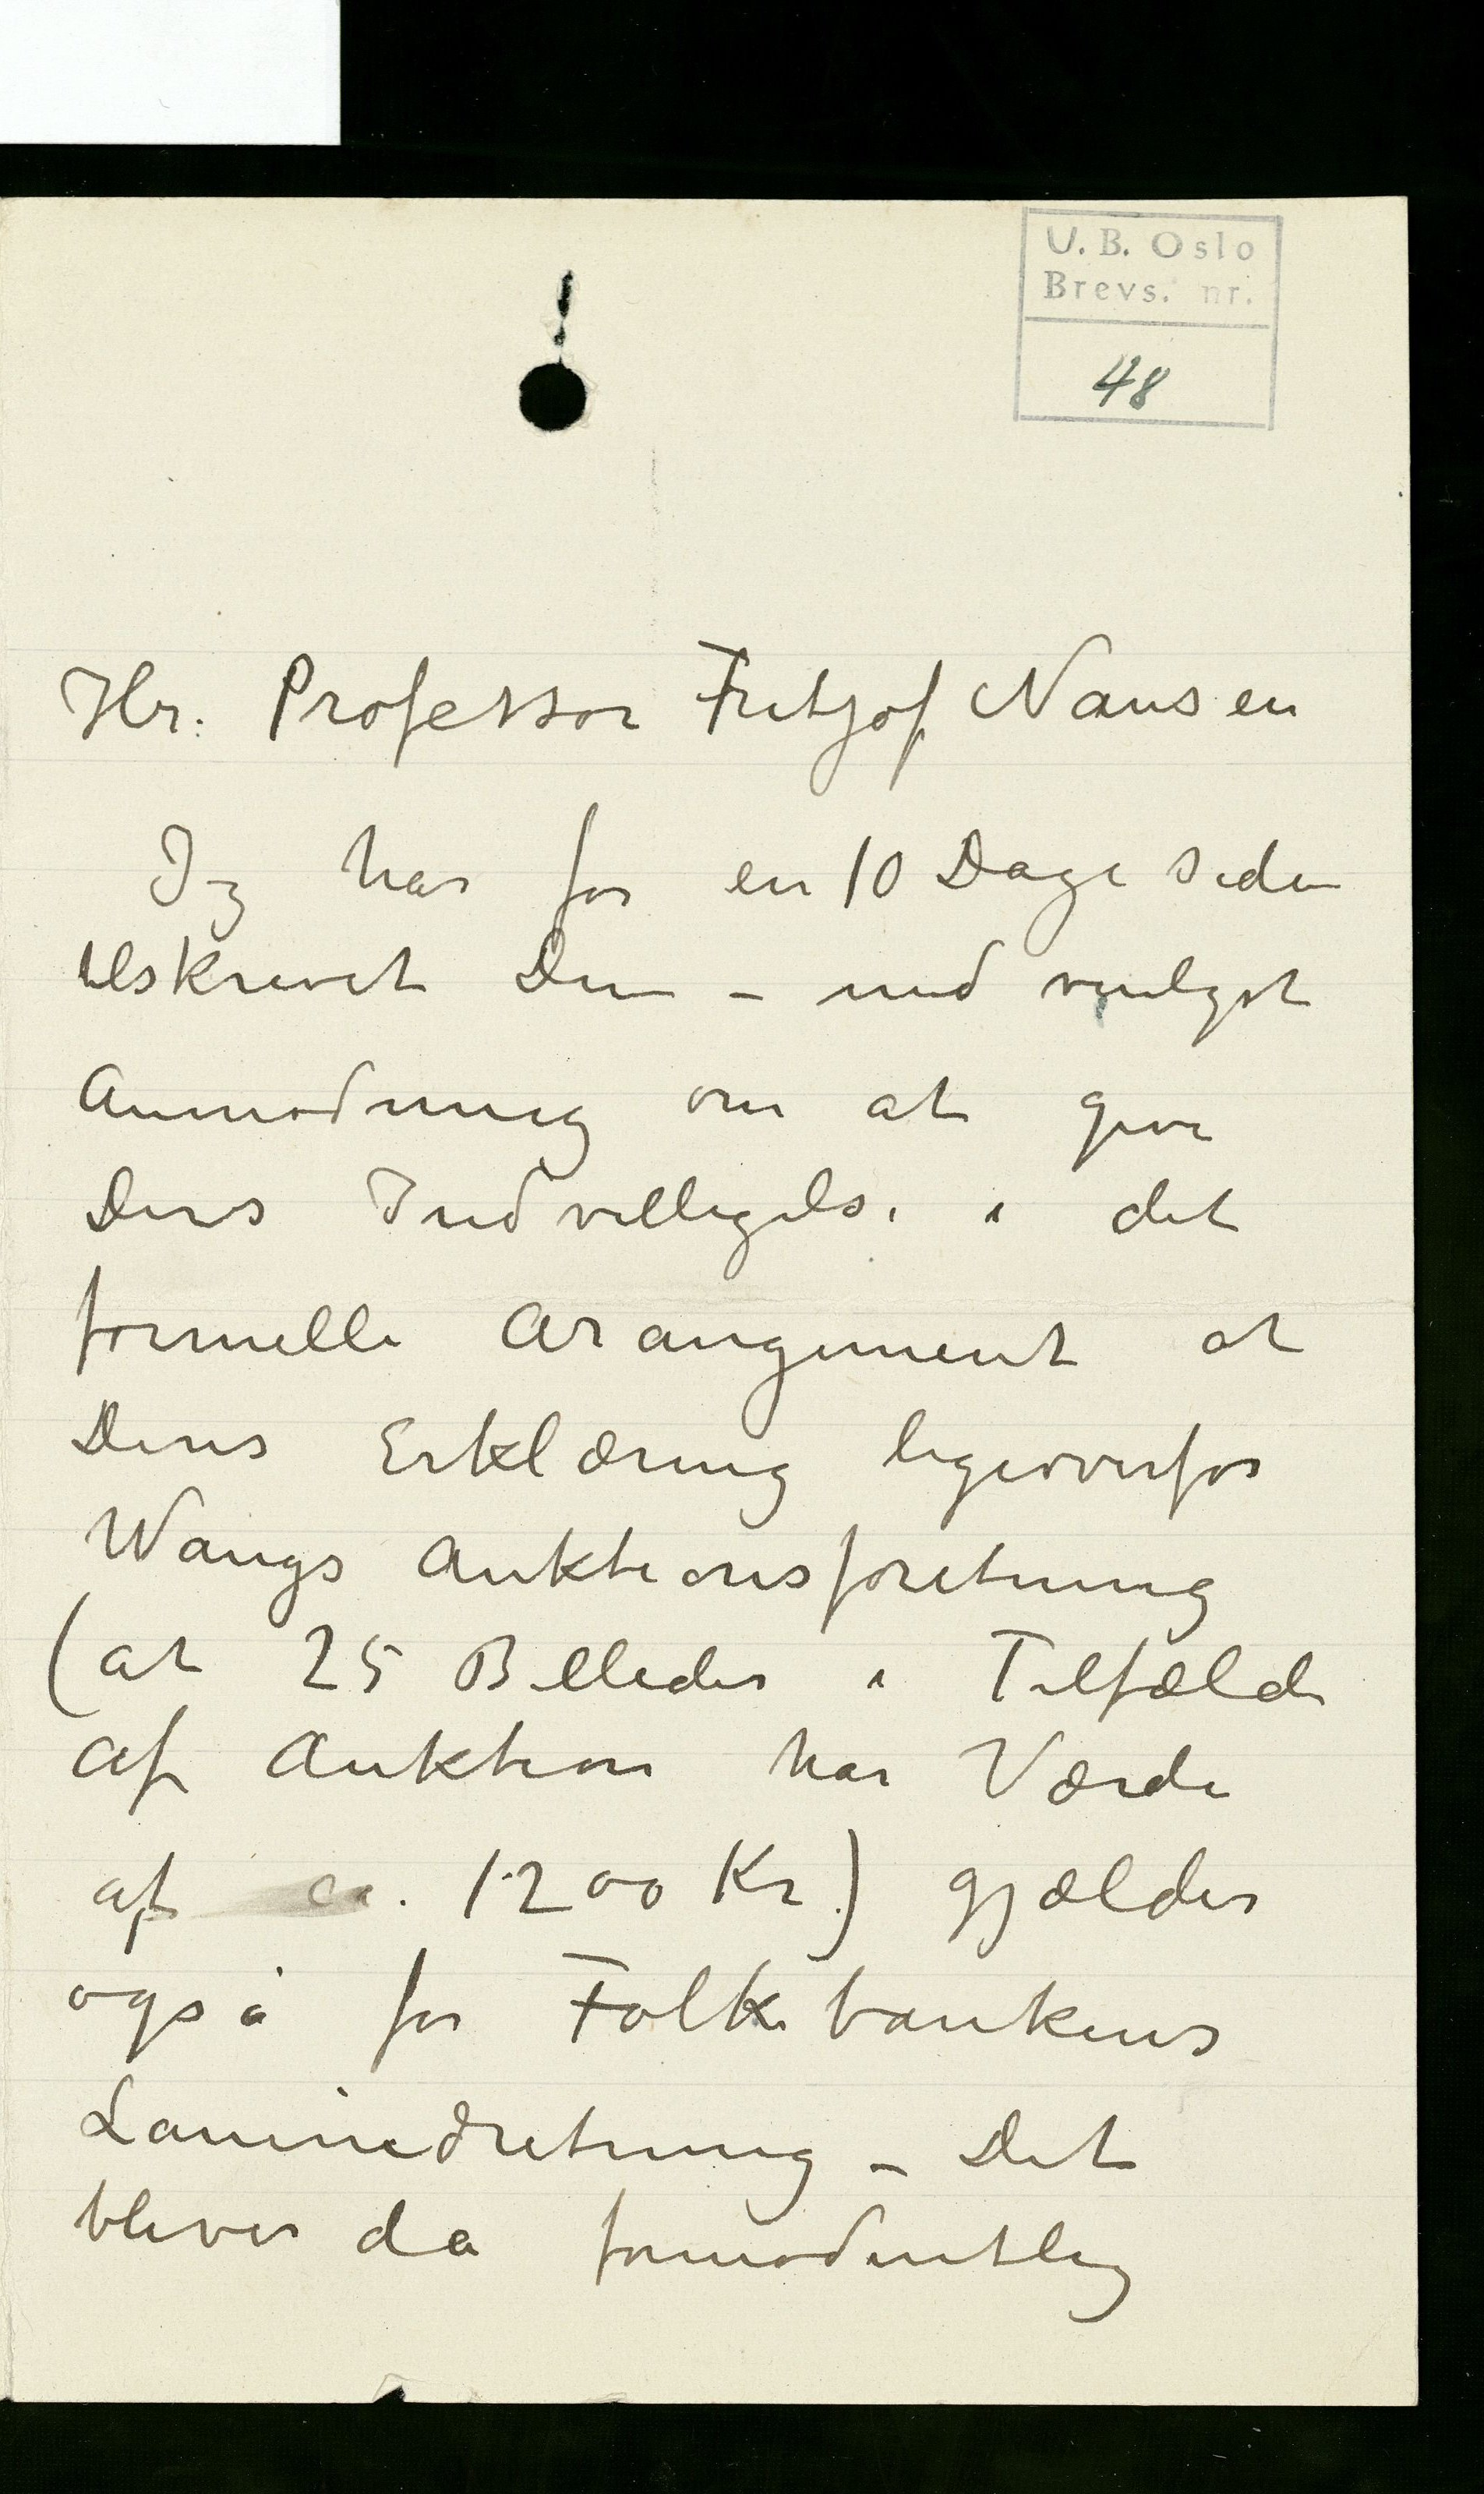 U. B. Oslo
Brevs. nr.
48
Hr. Professor Fritjof Nansen
Jeg har for en 10 Dage siden
tilskrevet Dem – med venligst
Anmodning om at give
Deres Indvilligelse i det
formelle Arangement at
Deres Erklæring ligeoverfor
Wangs Auktionsforetning
(at 25 Billeder i Tilfælde
af Auktion har Værdi
af ca. 1200 Kr.) gjælder
også for Folkebankens
Laaneindretning – Det
bliver da formodentlig